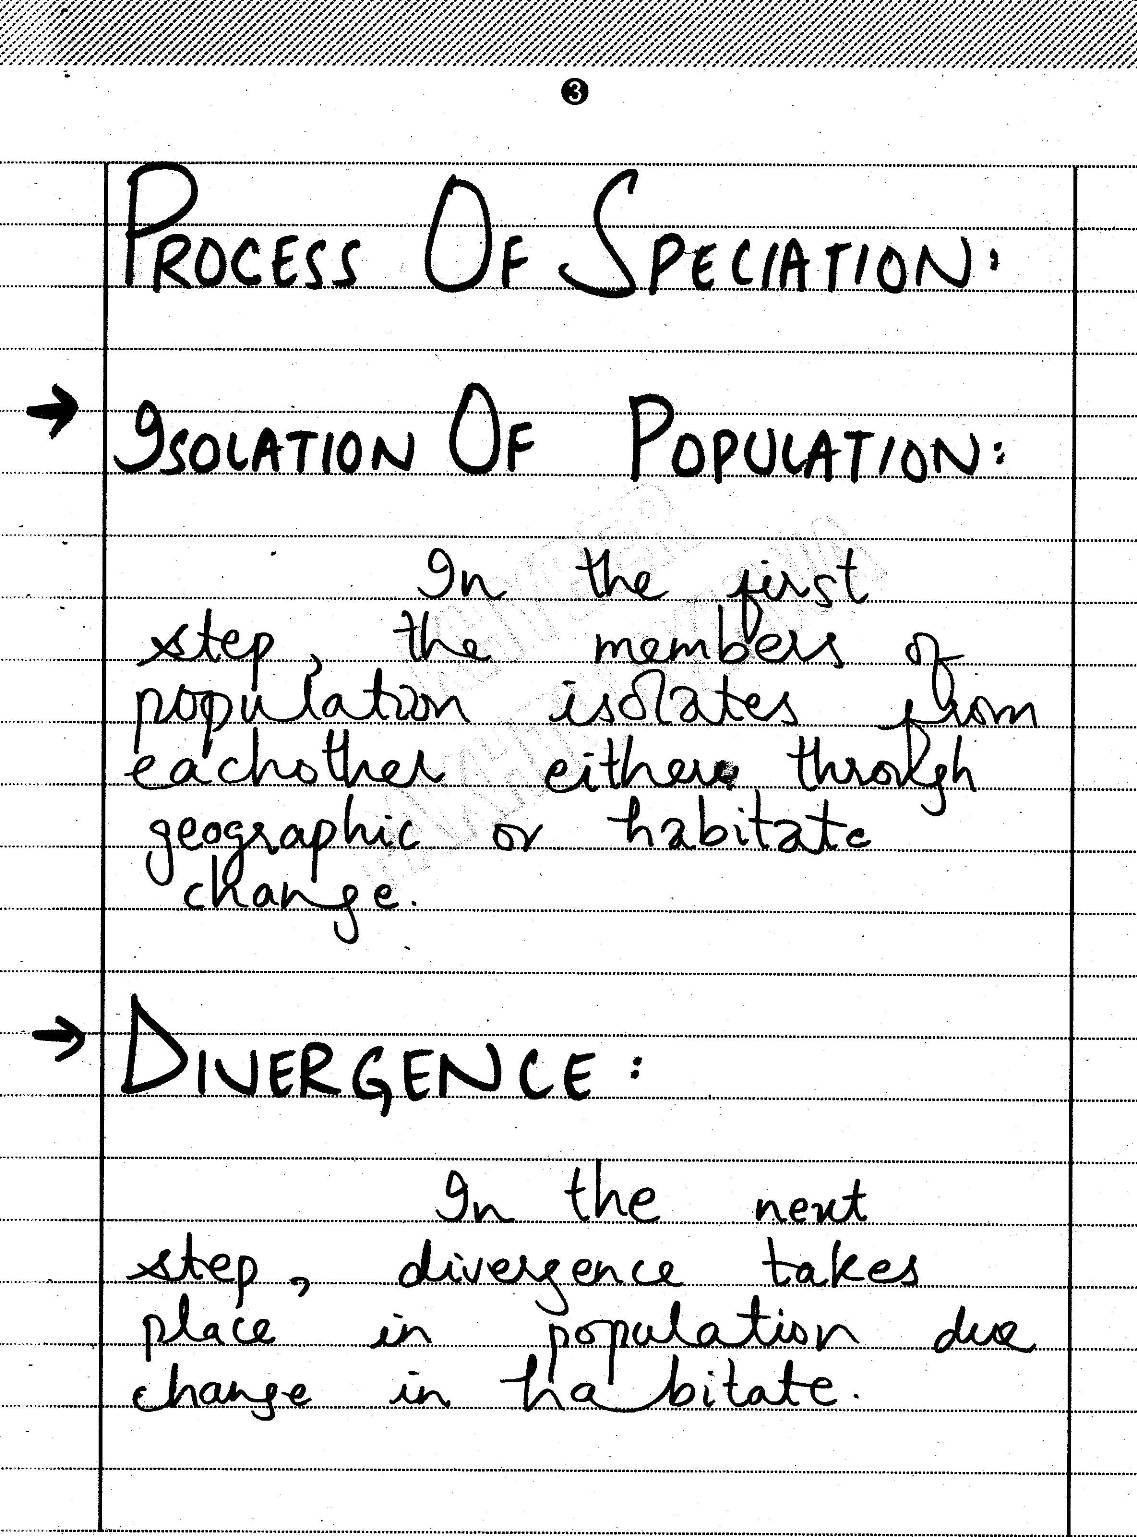 3
PROCESS OF SPECIATION:
→ ISOLATION OF POPULATION:
In the first
step, the members of
population isolates from
eachother either through
geographic or habitate
change.
→ DIVERGENCE:
In the next
step, divergence takes
place in population due
change in habitate.